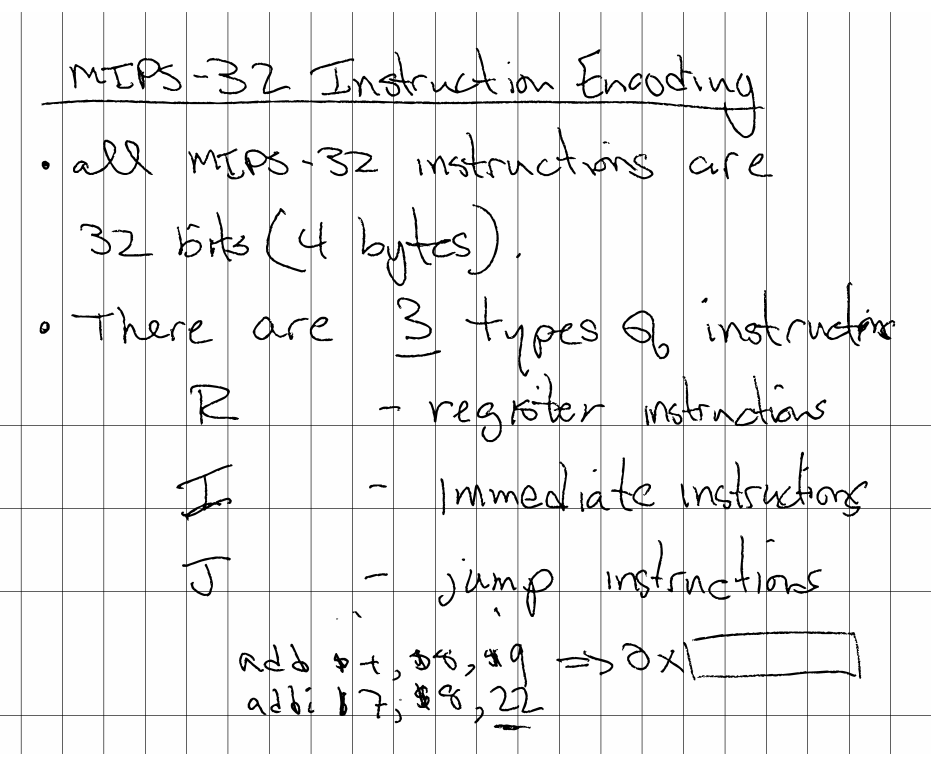 MIPS-32 Instruction Encoding
• all MIPS-32 instructions are
32 bits (4 bytes).
• There are 3 types of instructions
R - register instructions
I - Immediate instructions
J - jump instructions
add $7, $8, $9 => 0x
addi $7, $8, 22